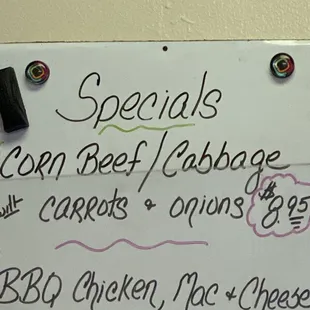 Specials
Corn Beef/Cabbage
with carrots & onions $8.95
BBQ Chicken, Mac & Cheese